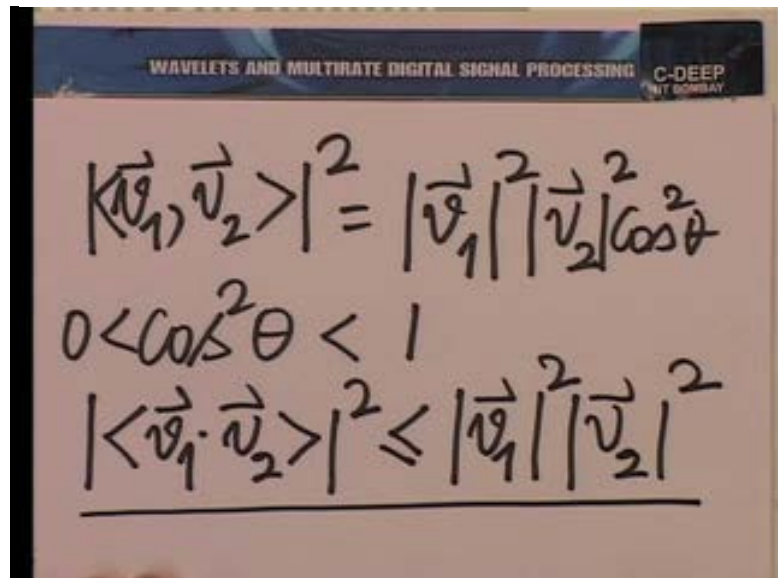 WAVELETS AND MULTIRATE DIGITAL SIGNAL PROCESSING
C-DEEP
IIT BOMBAY
|<v⃗₁, v⃗₂>|² = |v⃗₁|² |v⃗₂|² cos²θ
0 < cos²θ < 1
|<v⃗₁ · v⃗₂>|² ≤ |v⃗₁|² |v⃗₂|²